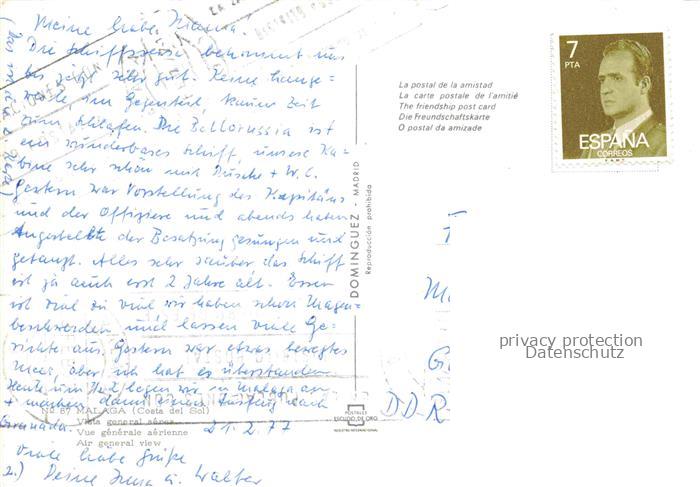 Meine liebe Mama.
Die Schiffsreise bekommt uns
bis jetzt sehr gut. Keine Lange-
weile im Gegenteil, keiner Zeit
zum schlafen. Die Bellorussia ist
ein wunderbares Schiff, unsere Ka-
bine sehr schön mit Dusche + W.C.
Gestern war Vorstellung des Kapitäns
und der Offiziere und abends haben
Angestellte der Besatzung gesungen und
getanzt. Alles sehr sauber das Schiff
ist ja auch erst 2 Jahre alt. Essen
ist viel zu viel wir haben schon Magen-
beschwerden und lassen viele Ge-
richte aus. Gestern war etwas bewegtes
Meer, aber ich hab es überstanden
Heute um legen wir in Malaga an
+ machen dann einen Ausflug nach
Granada. 21.2.77
Viele liebe Grüße
2.) Deine Inga u. Walter
No 67 MALAGA (Costa del Sol)
Vista general aérea
Vue générale aérienne
Air general view
DOMINGUEZ - MADRID
Reproducción prohibida
POSTALES
ESCUDO DE ORO
La postal de la amistad
La carte postale de l'amitié
The friendship post card
Die Freundschaftskarte
O postal da amizade
7
PTA
ESPAÑA
CORREOS
DDR
privacy protection
Datenschutz